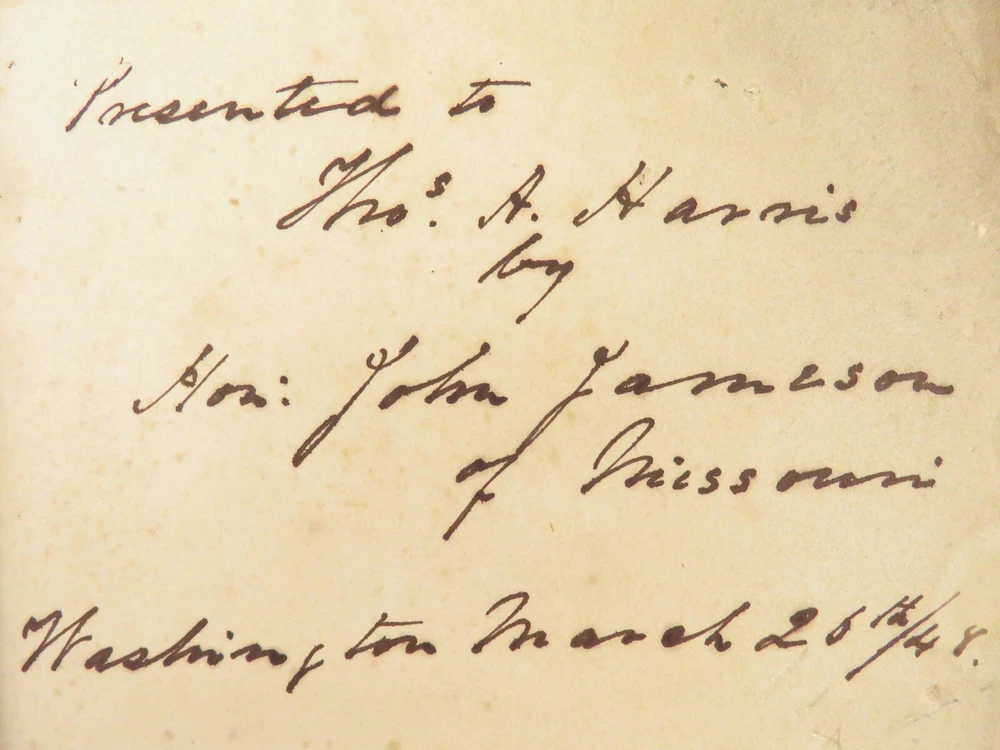 Presented to
Thos. A. Harris
by
Hon: John Jameson
of Missouri
Washington March 26th/48.